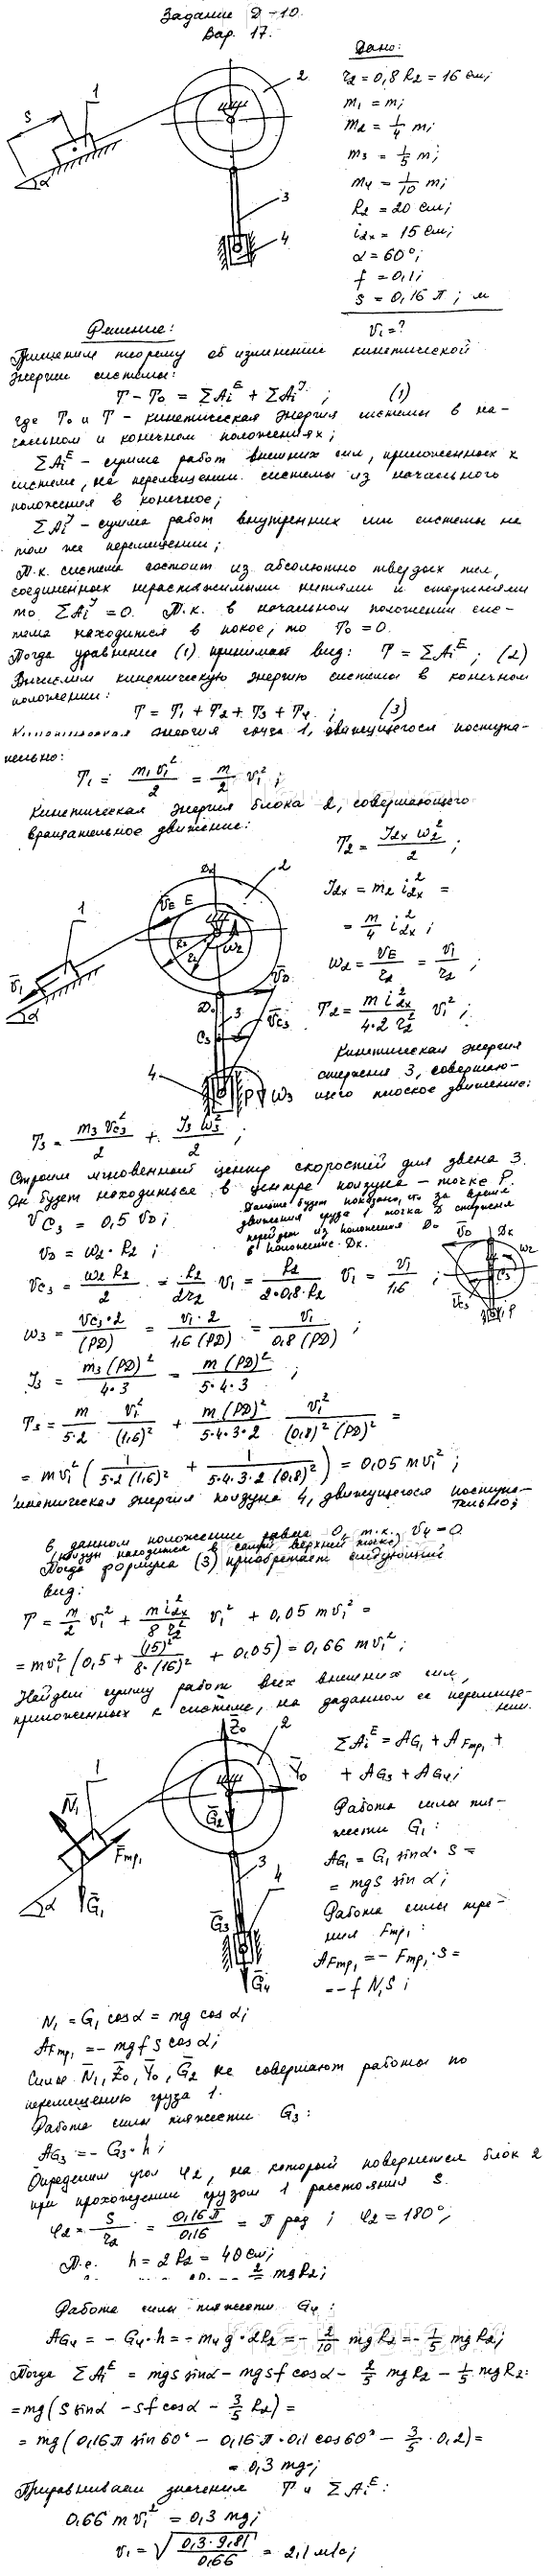 Задание Д-10.
Вар. 17.
Дано:
r₂ = 0,8 R₂ = 16 см;
m₁ = m;
m₂ = 1/4 m;
m₃ = 1/5 m;
m₄ = 1/10 m;
R₂ = 20 см;
i₂ₓ = 15 см;
α = 60°;
f = 0,1;
s = 0,16 π; м
v₁ = ?
1
2
3
4
S
α
Решение:
Применим теорему об изменении кинетической
энергии системы:
T - T₀ = ΣAᵢᴱ + ΣAᵢᴶ ; (1)
где T₀ и T - кинетическая энергия системы в на-
чальном и конечном положениях;
ΣAᵢᴱ - сумма работ внешних сил, приложенных к
системе, на перемещении системы из начального
положения в конечное;
ΣAᵢᴶ - сумма работ внутренних сил системы на
том же перемещении;
Т.к. система состоит из абсолютно твердых тел,
соединенных нерастяжимыми нитями и стержнями
то ΣAᵢᴶ = 0. Т.к. в начальном положении сис-
тема находится в покое, то T₀ = 0.
Тогда уравнение (1) принимает вид: T = ΣAᵢᴱ ; (2)
Вычислим кинетическую энергию системы в конечном
положении:
T = T₁ + T₂ + T₃ + T₄ ; (3)
Кинетическая энергия груза 1, движущегося поступа-
тельно:
T₁ = m₁v₁²/2 = m/2 v₁² ;
Кинетическая энергия блока 2, совершающего
вращательное движение:
T₂ = J₂ₓ ω₂²/2 ;
J₂ₓ = m₂ i₂ₓ² =
= m/4 i₂ₓ² ;
ω₂ = v_E/r₂ = v₁/r₂ ;
T₂ = m i₂ₓ²/(4·2 r₂²) v₁² ;
1
2
3
4
v_E
E
Dₖ
R₂
r₂
ω₂
v̄₁
α
D₀
v̄_D
C₃
v̄_C₃
P
ω₃
Кинетическая энергия
стержня 3, совершаю-
щего плоское движение:
T₃ = m₃ v_C₃²/2 + J₃ ω₃²/2 ;
Строим мгновенный центр скоростей для звена 3.
Он будет находиться в центре ползуна - точке P.
Дальше будет показано, что за время
движения груза 1 точка D стержня
перейдет из положения D₀
в положение Dₖ.
v_C₃ = 0,5 v_D ;
v_D = ω₂ · R₂ ;
v_C₃ = ω₂R₂/2 = R₂/2r₂ v₁ = R₂/(2·0,8·R₂) v₁ = v₁/1,6 ;
v̄_D
Dₖ
ω₂
C₃
v̄_C₃
P
ω₃ = v_C₃·2/(PD) = v₁·2/(1,6 (PD)) = v₁/(0,8 (PD)) ;
J₃ = m₃(PD)²/(4·3) = m(PD)²/(5·4·3) ;
T₃ = m/(5·2) v₁²/(1,6)² + m(PD)²/(5·4·3·2) v₁²/((0,8)²(PD)²) =
= mv₁² (1/(5·2(1,6)²) + 1/(5·4·3·2(0,8)²)) = 0,05 mv₁² ;
Кинетическая энергия ползуна 4, движущегося поступа-
тельно,
в данном положении равна 0, т.к. v₄ = 0
(ползун находится в самой верхней точке)
Тогда формула (3) приобретает следующий
вид:
T = m/2 v₁² + m i₂ₓ²/8 r₂² v₁² + 0,05 mv₁² =
= mv₁² (0,5 + (15)²/(8·(16)²) + 0,05) = 0,66 mv₁² ;
Найдем сумму работ всех внешних сил,
приложенных к системе, на заданном ее перемеще-
нии.
ΣAᵢᴱ = A_G₁ + A_Fтр₁ +
+ A_G₃ + A_G₄ ;
Работа силы тя-
жести G₁ :
A_G₁ = G₁ sinα · S =
= mgs sin α ;
Работа силы тре-
ния Fтр₁ :
A_Fтр₁ = - Fтр₁ · S =
= - f N₁ S ;
1
2
3
4
N̄₁
F̄тр₁
Ḡ₁
α
Z̄₀
Ȳ₀
Ḡ₂
Ḡ₃
Ḡ₄
N₁ = G₁ cos α = mg cos α ;
A_Fтр₁ = - mg f s cos α ;
Силы N̄₁, Z̄₀, Ȳ₀, Ḡ₂ не совершают работы по
перемещению груза 1.
Работа силы тяжести G₃ :
A_G₃ = - G₃ · h ;
Определим угол φ₂, на который повернется блок 2
при прохождении грузом 1 расстояния S.
φ₂ = S/r₂ = 0,16π/0,16 = π рад ; φ₂ = 180° ;
Т.е. h = 2R₂ = 40 см ;
2/5 mgR₂ ;
Работа силы тяжести G₄ :
A_G₄ = - G₄·h = - m₄g·2R₂ = - 2/10 mgR₂ = - 1/5 mgR₂ ;
Тогда ΣAᵢᴱ = mgs sinα - mgsf cosα - 2/5 mgR₂ - 1/5 mgR₂ =
= mg (s sinα - sf cosα - 3/5 R₂) =
= mg (0,16π sin 60° - 0,16π·0,1 cos 60° - 3/5 · 0,2) =
= 0,3 mg ;
Приравниваем значения T и ΣAᵢᴱ :
0,66 mv₁² = 0,3 mg ;
v₁ = √(0,3·9,81/0,66) = 2,1 м/с ;